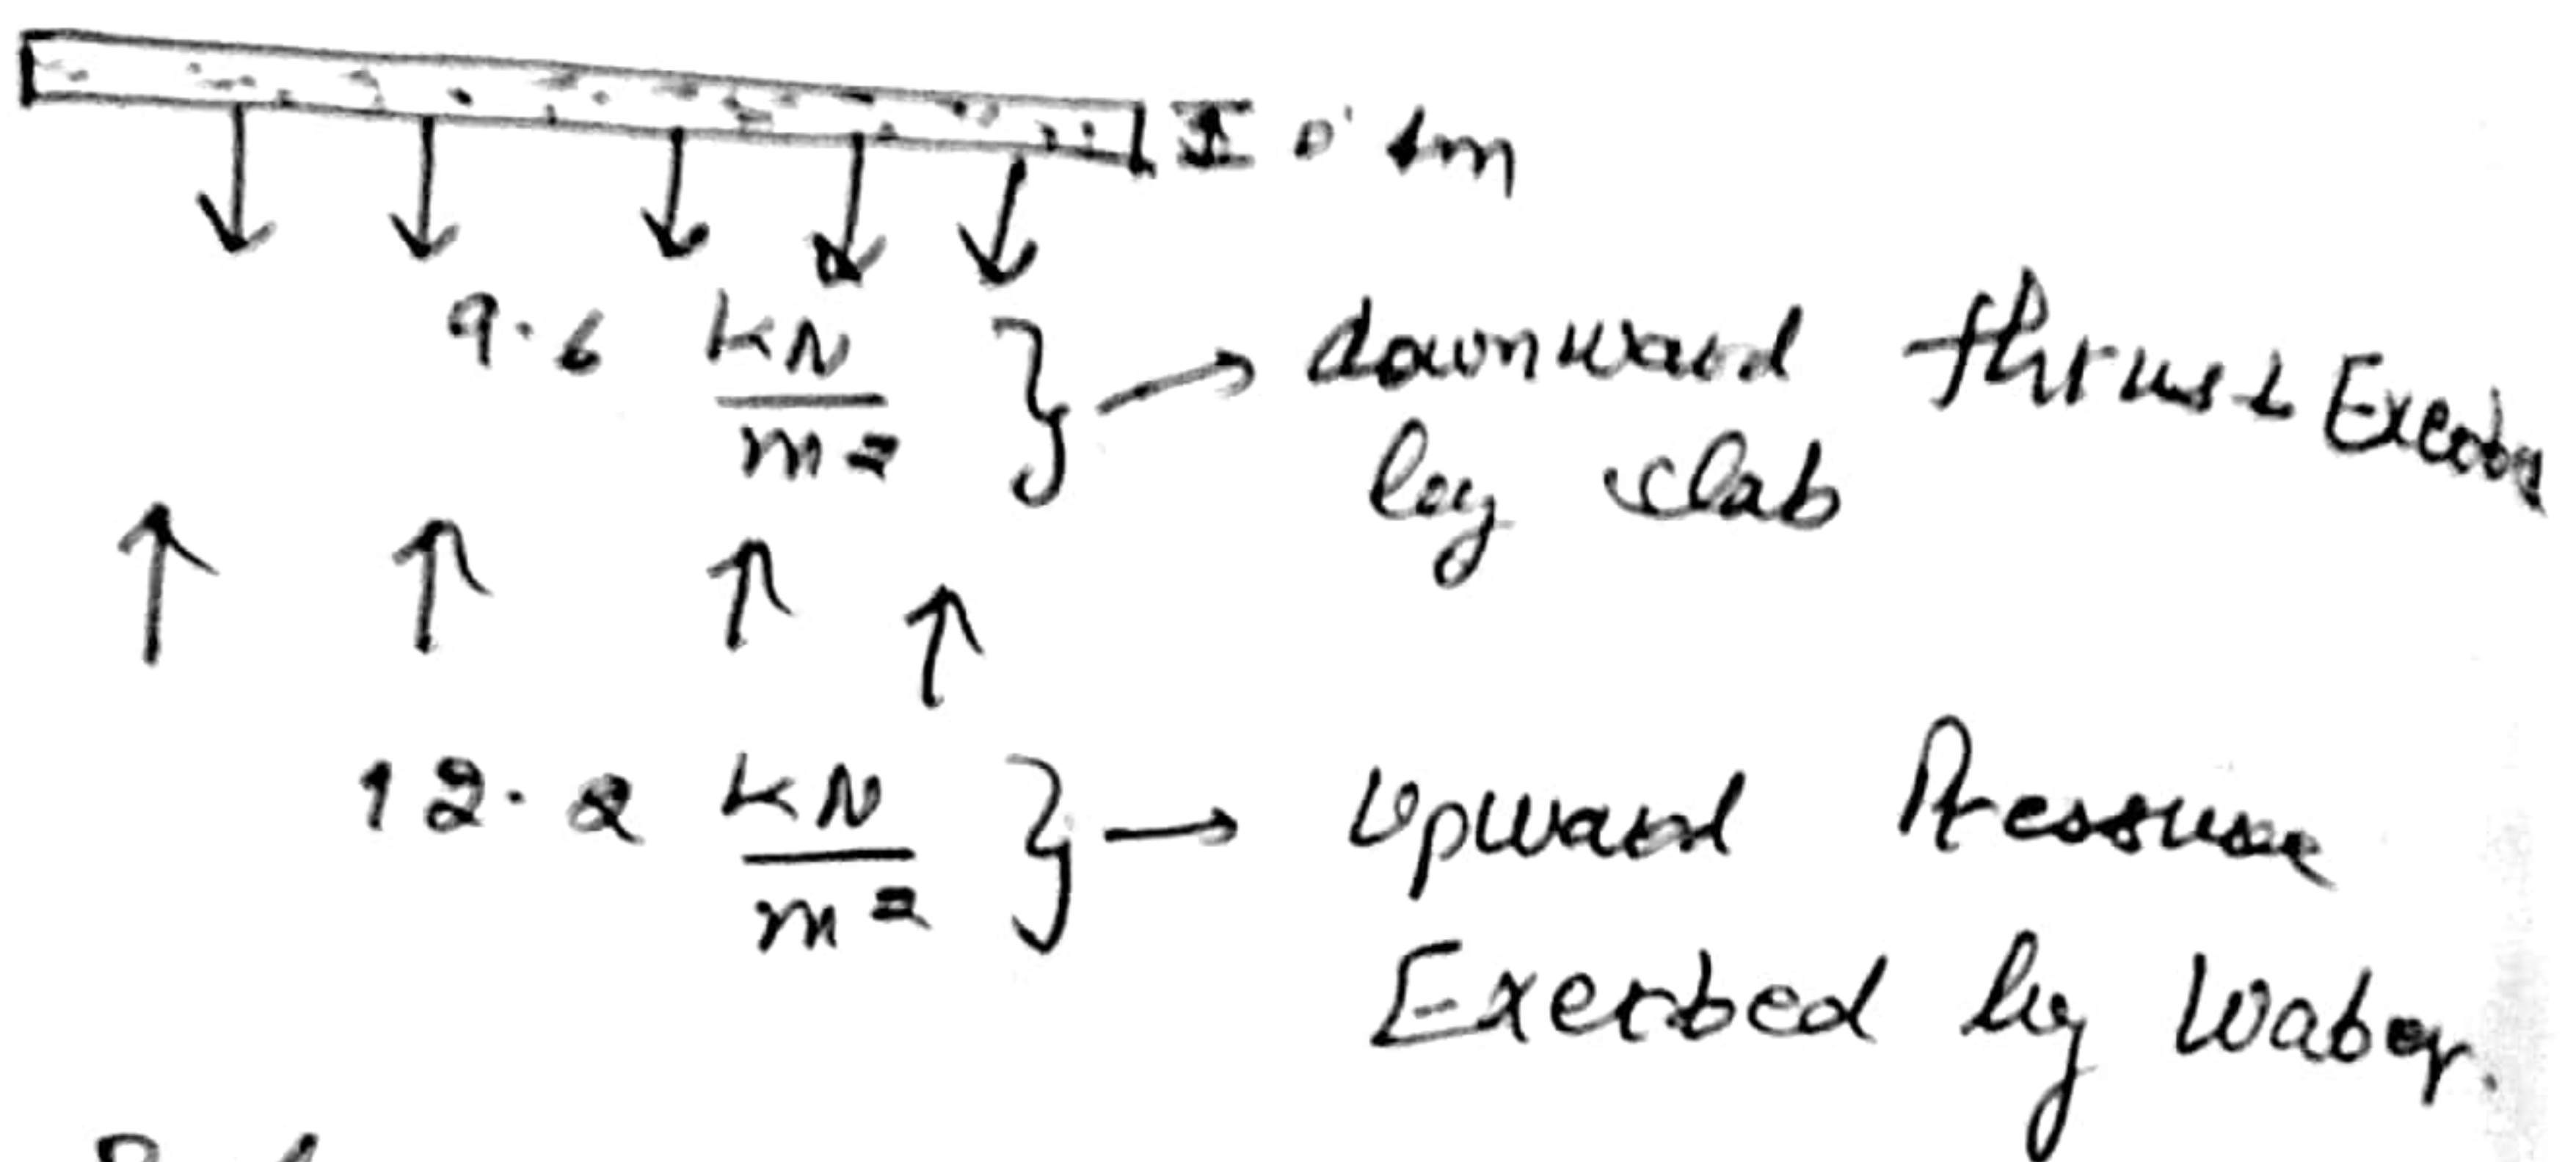 0.4m
9.6 kN/m² } → downward thrust Exerted
by slab
12.2 kN/m² } → Upward Pressure
Exerted by Water.